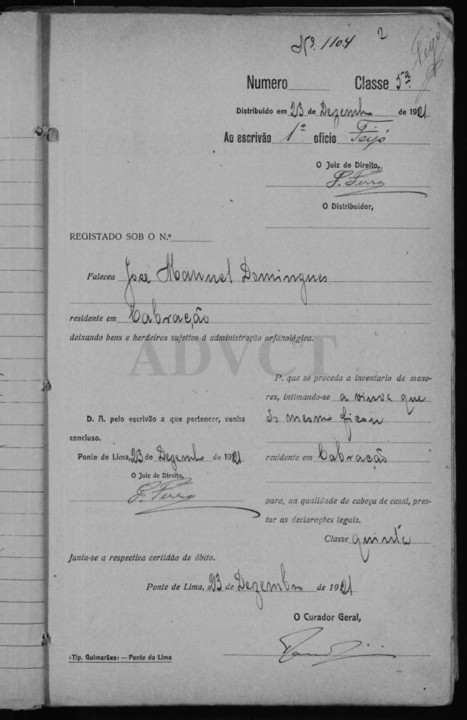 Nº 1104 2
Feijó
Numero Classe 5ª
Distribuido em 23 de Dezembro de 1921
Ao escrivão 1º oficio Feijó
O Juiz de Direito,
O Distribuidor,
REGISTADO SOB O N.º
Faleceu José Manuel Domingues
residente em Cabração
deixando bens e herdeiros sujeitos á administração orfanológica.
ADVCT
P. que se proceda a inventario de meno-
res, intimando-se a viuva que
do mesmo ficou
residente em Cabração
para, na qualidade de cabeça de casal, pres-
tar as declarações legais.
Classe quinta
D. A. pelo escrivão a que pertencer, venha
concluso.
Ponte de Lima, 23 de Dezembro de 1921
O Juiz de Direito,
Junta-se a respectiva certidão de óbito.
Ponte de Lima, 23 de Dezembro de 1921
O Curador Geral,
«Tip. Guimarães»—Ponte do Lima